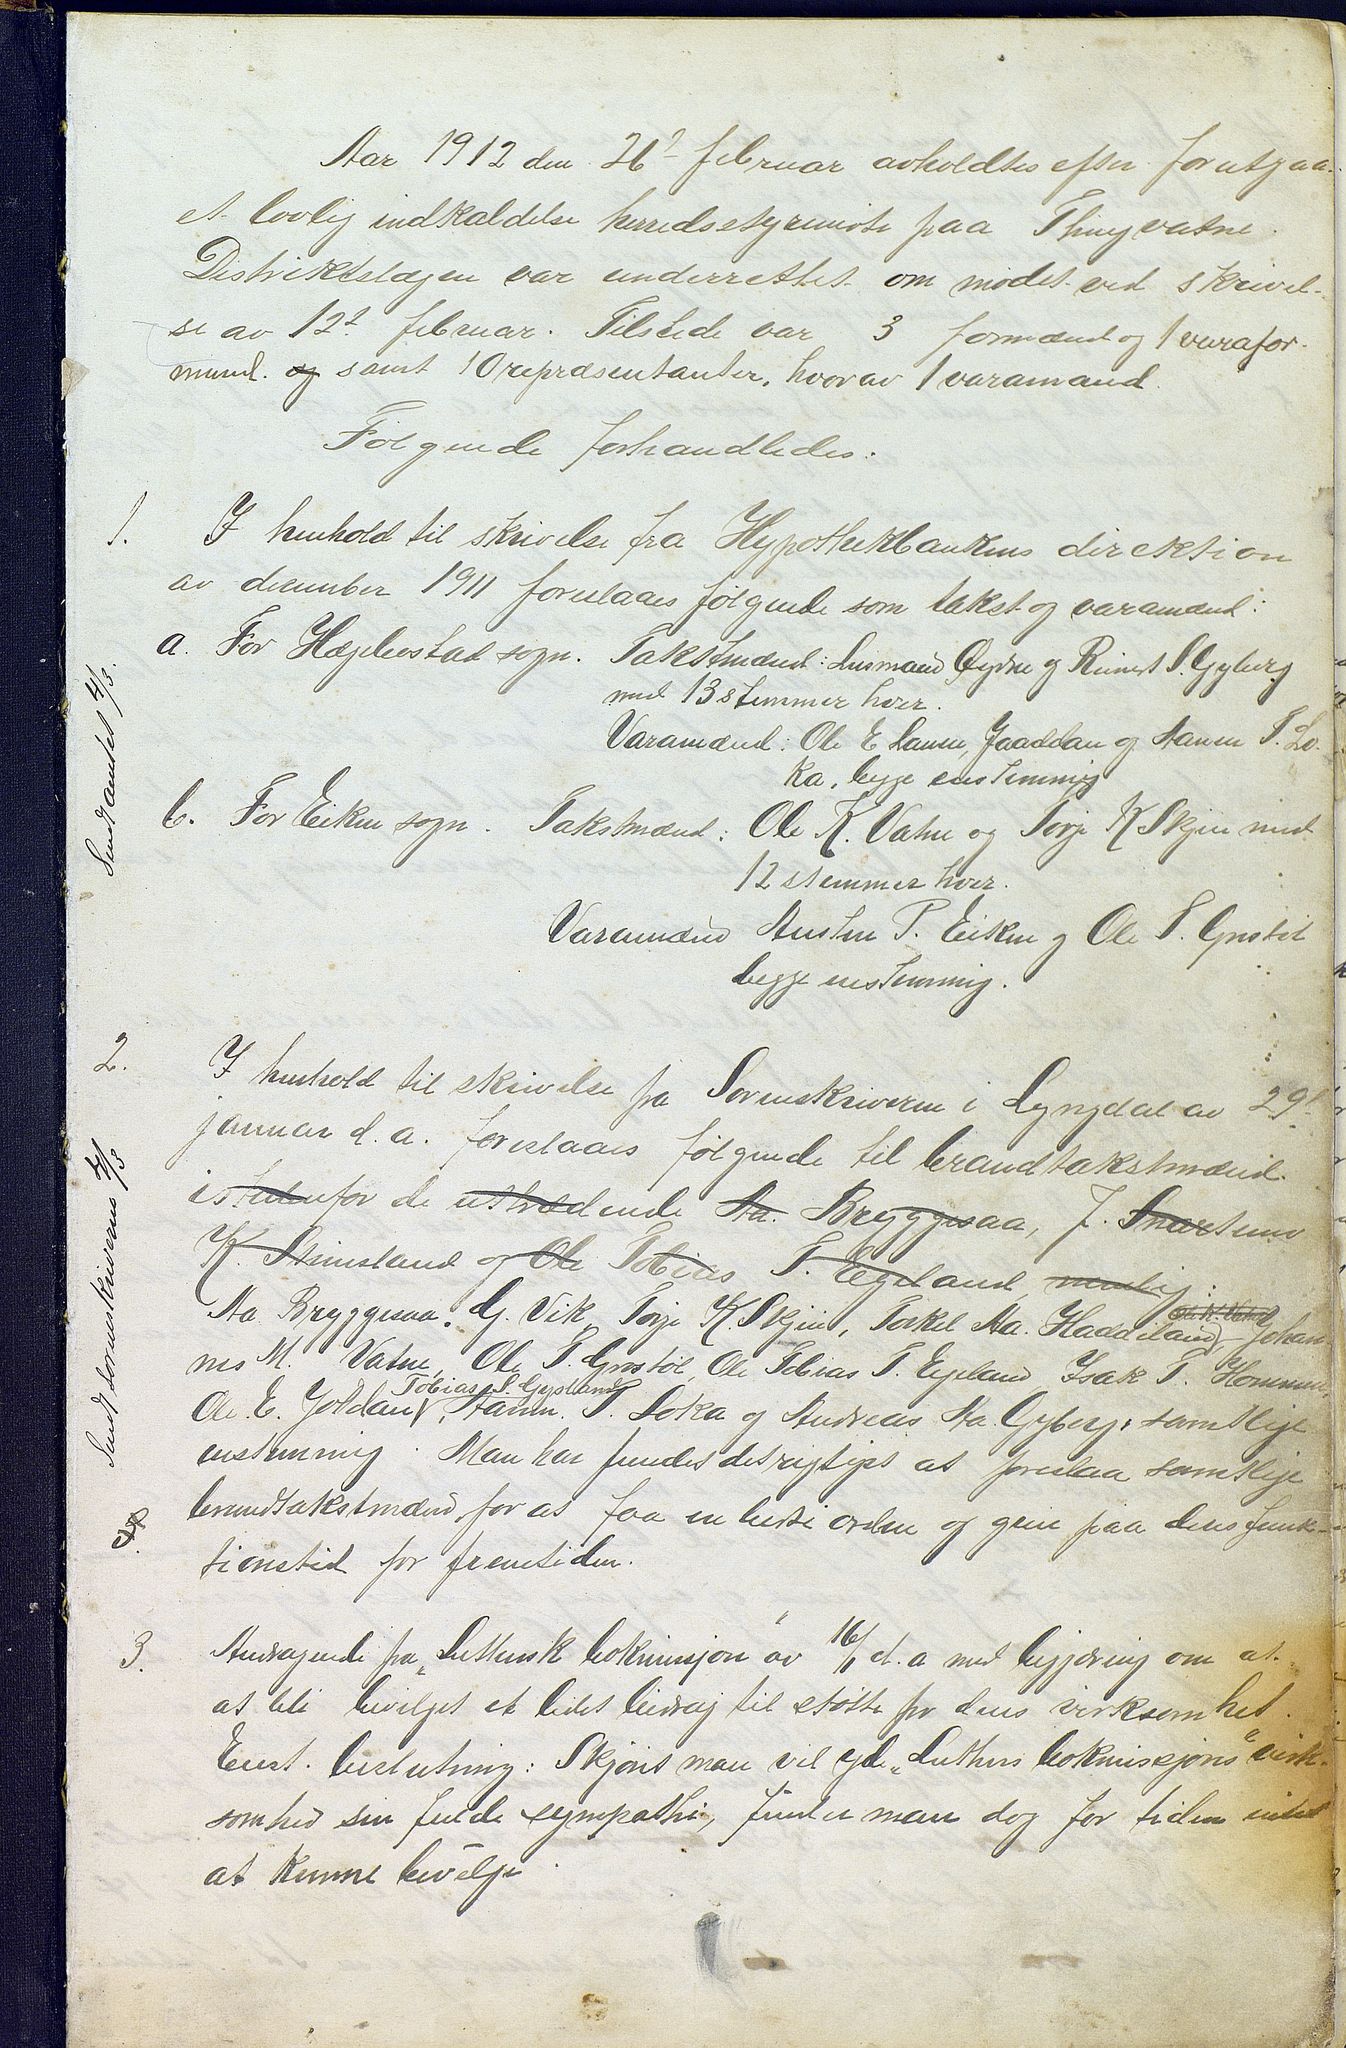 Aar 1912 den 26' februar avholdtes efter forutgaa-
et lovlig indkaldelse herredsstyremøte paa Thingvatne.
Distriktslægen var underrettet om mødet ved skrivel-
se av 12t februar. Tilstede var 3 formænd og 1 varafor-
mand. og samt 10 repræsentanter, hvorav 1 varamand.
Følgende forhandledes:
1. I henhold til skrivelse fra Hypothekbankens direktion
av december 1911 foreslaaes følgende som takst og varamænd:
a. For Hægebostad sogn. Takstmænd: Lensmand Øydne og Reinert S. Gyberg
med 13 stemmer hver.
Varamænd: Ole E. Lauen, Jaaddan og Aanen T. Lo-
ka, begge enstemmig
Sendt amtet 4/3.
b. For Eiken sogn. Takstmænd: Ole K. Vatne og Torje K Skjen med
12 stemmer hver.
Varamænd Austen P. Eiken og Ole T. Gnstøl
begge enstemmig.
2. I henhold til skrivelse fra Sorenskriveren i Lyngdal av 29t
januar d. a. foreslaaes følgende til brandtakstmænd.
istedenfor de uttrædende Aa. Bryggesaa, J. Snartemo
K. Stinesland og Ole Tobias T. Egeland, nemlig:
Ole K. Vatne
Aa. Bryggesaa. G. Vik, Torje K. Skjen, Torkel Aa. Haddeland, Johan-
nes M. Vatne, Ole T. Gnstøl, Ole Tobias T. Egeland, Isak T. Hommen,
Tobias S. Gysland
Ole E. Joldan, Aanen T. Loka og Andreas Aa Gyberg, samtlige
enstemmig. Man har fundet det rigtigst at foreslaa samtlige
brandtakstmænd for at faa en bedre orden og grei paa deres funk-
tionstid for fremtiden.
Sendt sorenskriveren 4/3
3. Andragende fra "Luthersk bokmisjon" av 16/1 d. a med begjæring om at
at bli bevilget et lidet bidrag til støtte for dens virksomhet.
Enst. beslutning: Skjønt man vil yde "Luthers bokmissjons" virk-
somhed sin fulde sympathi, finder man dog for tiden intet
at kunne bevilge.